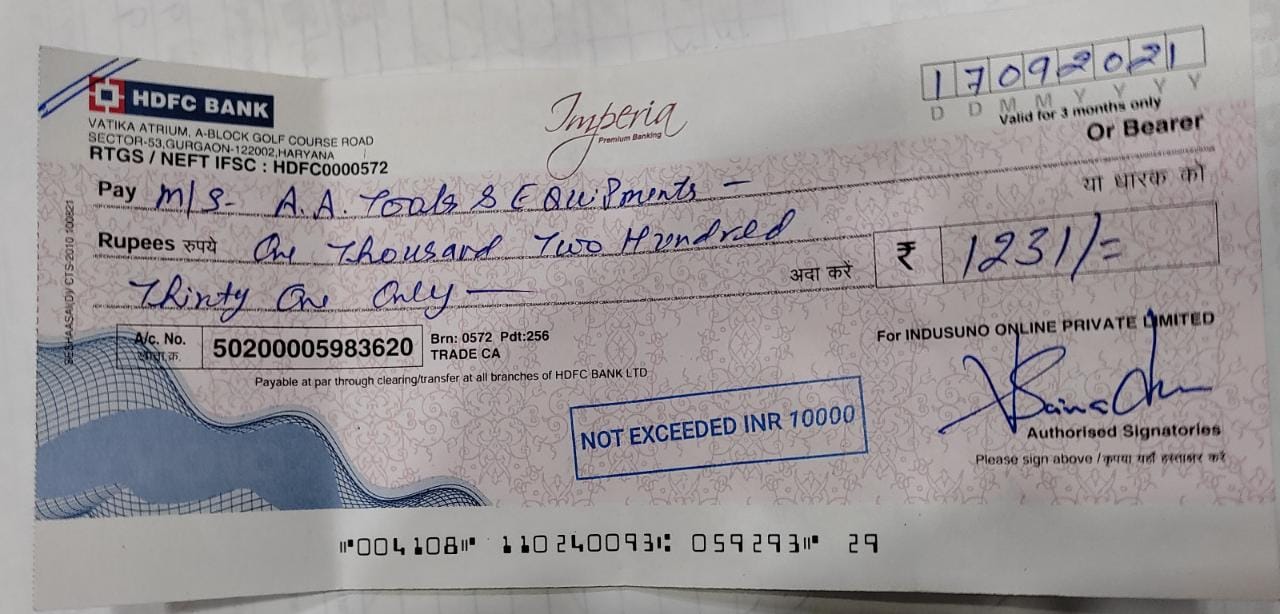 HDFC BANK
VATIKA ATRIUM, A-BLOCK GOLF COURSE ROAD
SECTOR-53,GURGAON-122002,HARYANA
RTGS / NEFT IFSC : HDFC0000572
Imperia
Premium Banking
17092021
D D M M Y Y Y Y
Valid for 3 months only
Or Bearer
या धारक को
Pay M/S- A.A. Tools & EQuiPments -
Rupees रुपये One Thousand Two Hundred
Thirty One Only —
अदा करें ₹ 1231/=
A/c. No. 50200005983620
Brn: 0572 Pdt:256
TRADE CA
Payable at par through clearing/transfer at all branches of HDFC BANK LTD
NOT EXCEEDED INR 10000
For INDUSUNO ONLINE PRIVATE LIMITED
Authorised Signatories
Please sign above / कृपया यहाँ हस्ताक्षर करें
⑈004108⑈ 110240093⑆ 059293⑈ 29